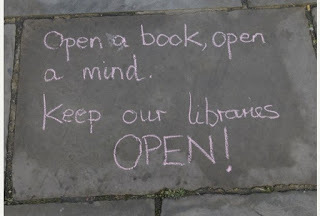 Open a book, open
a mind.
Keep our libraries
OPEN!